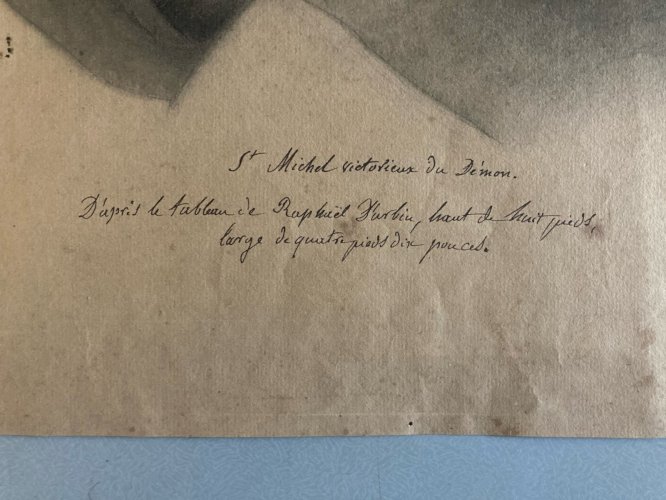 St Michel victorieux du Démon.
D'après le tableau de Raphaël d'Urbin, haut de huit pieds,
large de quatre pieds dix pouces.